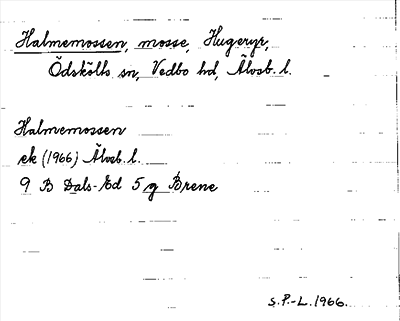 Halmemossen, mosse, Hugeryr,
Ödskölts sn, Vedbo hd, Älvsb. l.
Halmemossen
ek (1966) Älvsb. l.
9 B Dals-Ed 5 g Brene
S.P.-L. 1966.